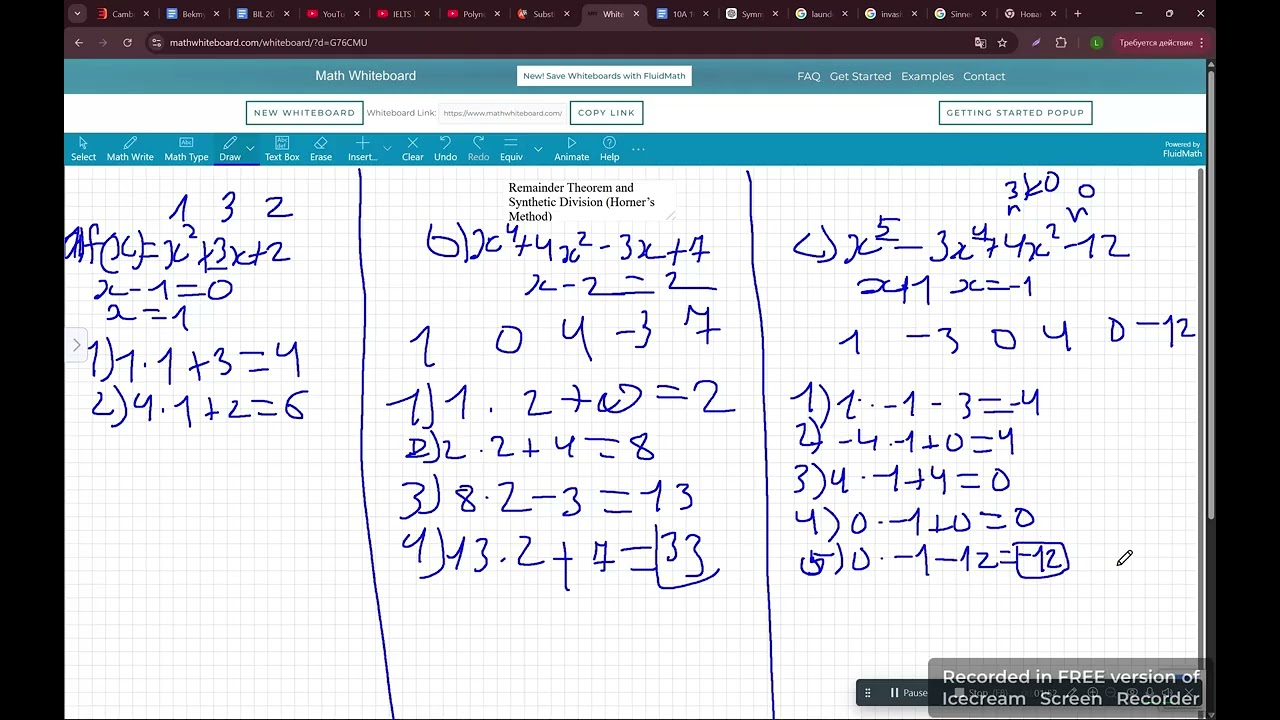 Camb
Bekmy
BIL 20
YouTu
IELTS
Polyno
Substi
White
10A 1
Symm
laund
invasi
Sinne
Нова
mathwhiteboard.com/whiteboard/?d=G76CMU
L
Требуется действие
Math Whiteboard
New! Save Whiteboards with FluidMath
FAQ Get Started Examples Contact
NEW WHITEBOARD Whiteboard Link: https://www.mathwhiteboard.com/ COPY LINK
GETTING STARTED POPUP
Select Math Write Math Type Draw Text Box Erase Insert... Clear Undo Redo Equiv Animate Help
Powered by
FluidMath
Remainder Theorem and
Synthetic Division (Horner's
Method)
1 3 2
f(x)=x²+3x+2
x-1=0
x=1
1)1·1+3=4
2)4·1+2=6
b)x⁴+4x²-3x+7
x-2=2
1 0 4 -3 7
1)1·2+0=2
2)2·2+4=8
3)8·2-3=13
4)13·2+7=33
0 0
c)x⁵-3x⁴+4x²-12
x+1 x=-1
1 -3 0 4 0 -12
1)1·-1-3=-4
2)-4·-1+0=4
3)4·-1+4=0
4)0·-1+0=0
5)0·-1-12=-12
Pause
Recorded in FREE version of
Icecream Screen Recorder